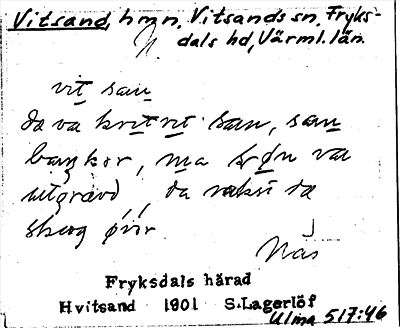 Vitsand, hmn, Vitsands sn, Fryks-
dals hd, Värml. län.
vit san
da va kvitvit san, sam
bangkor, ma
utgravd, da
skog øvir
Näs
Fryksdals härad
Hvitsand 1901 S.Lagerlöf
Ulma 517:46